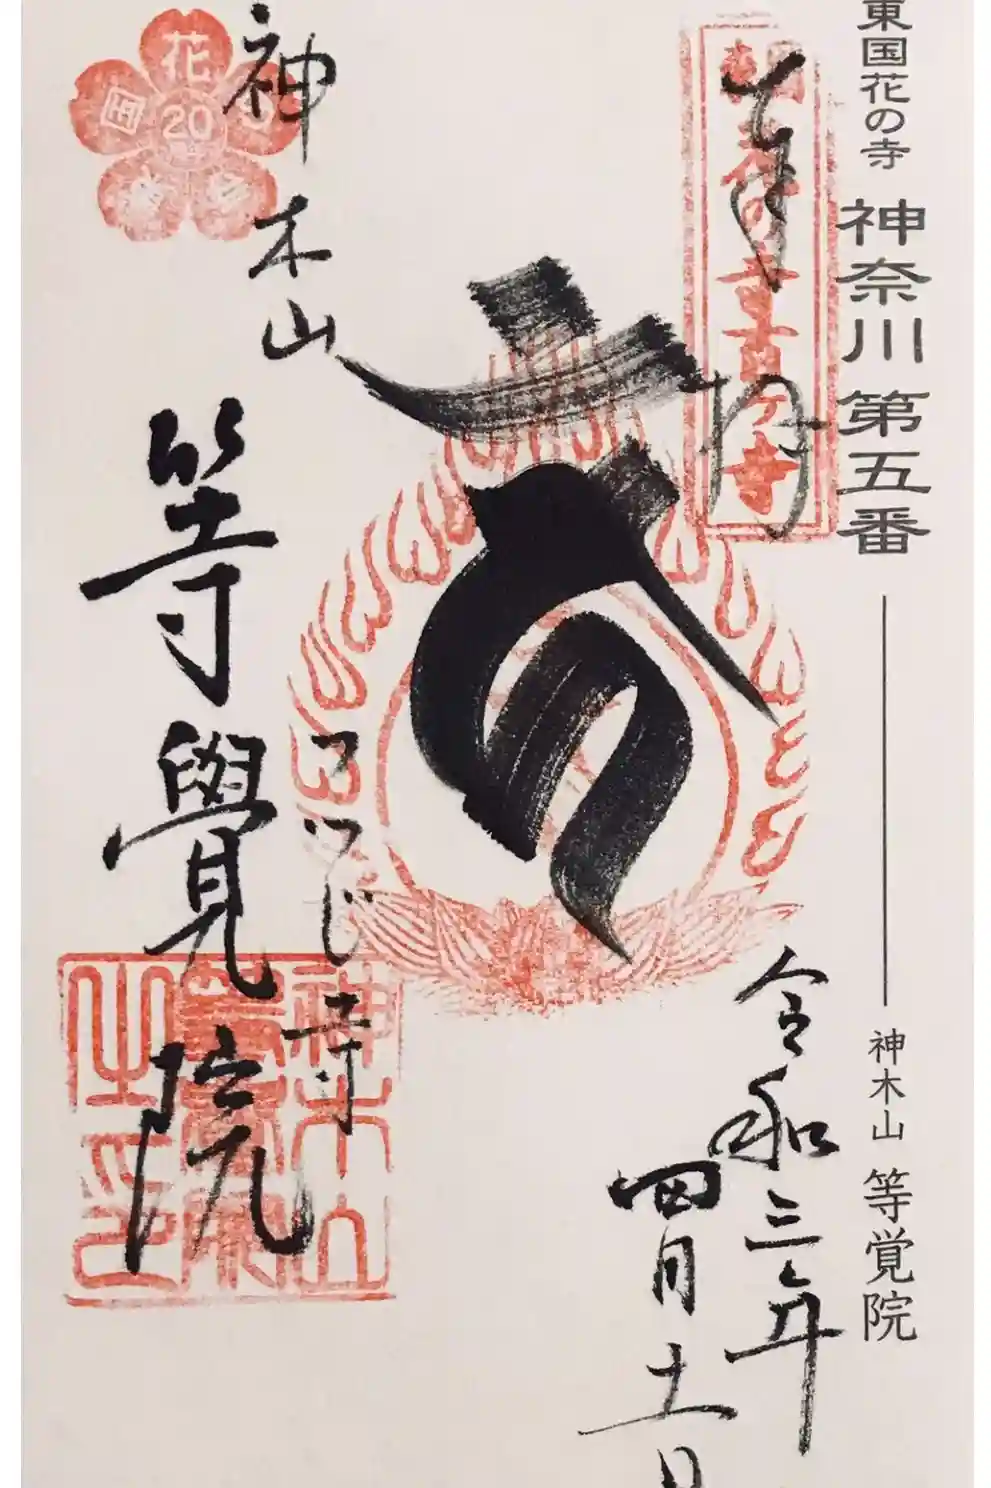 東国花の寺 神奈川 第五番
神木山 等覚院
奉拝
令和三年
四月十一日
つつじ寺
神木山
等覺院
花
20
国